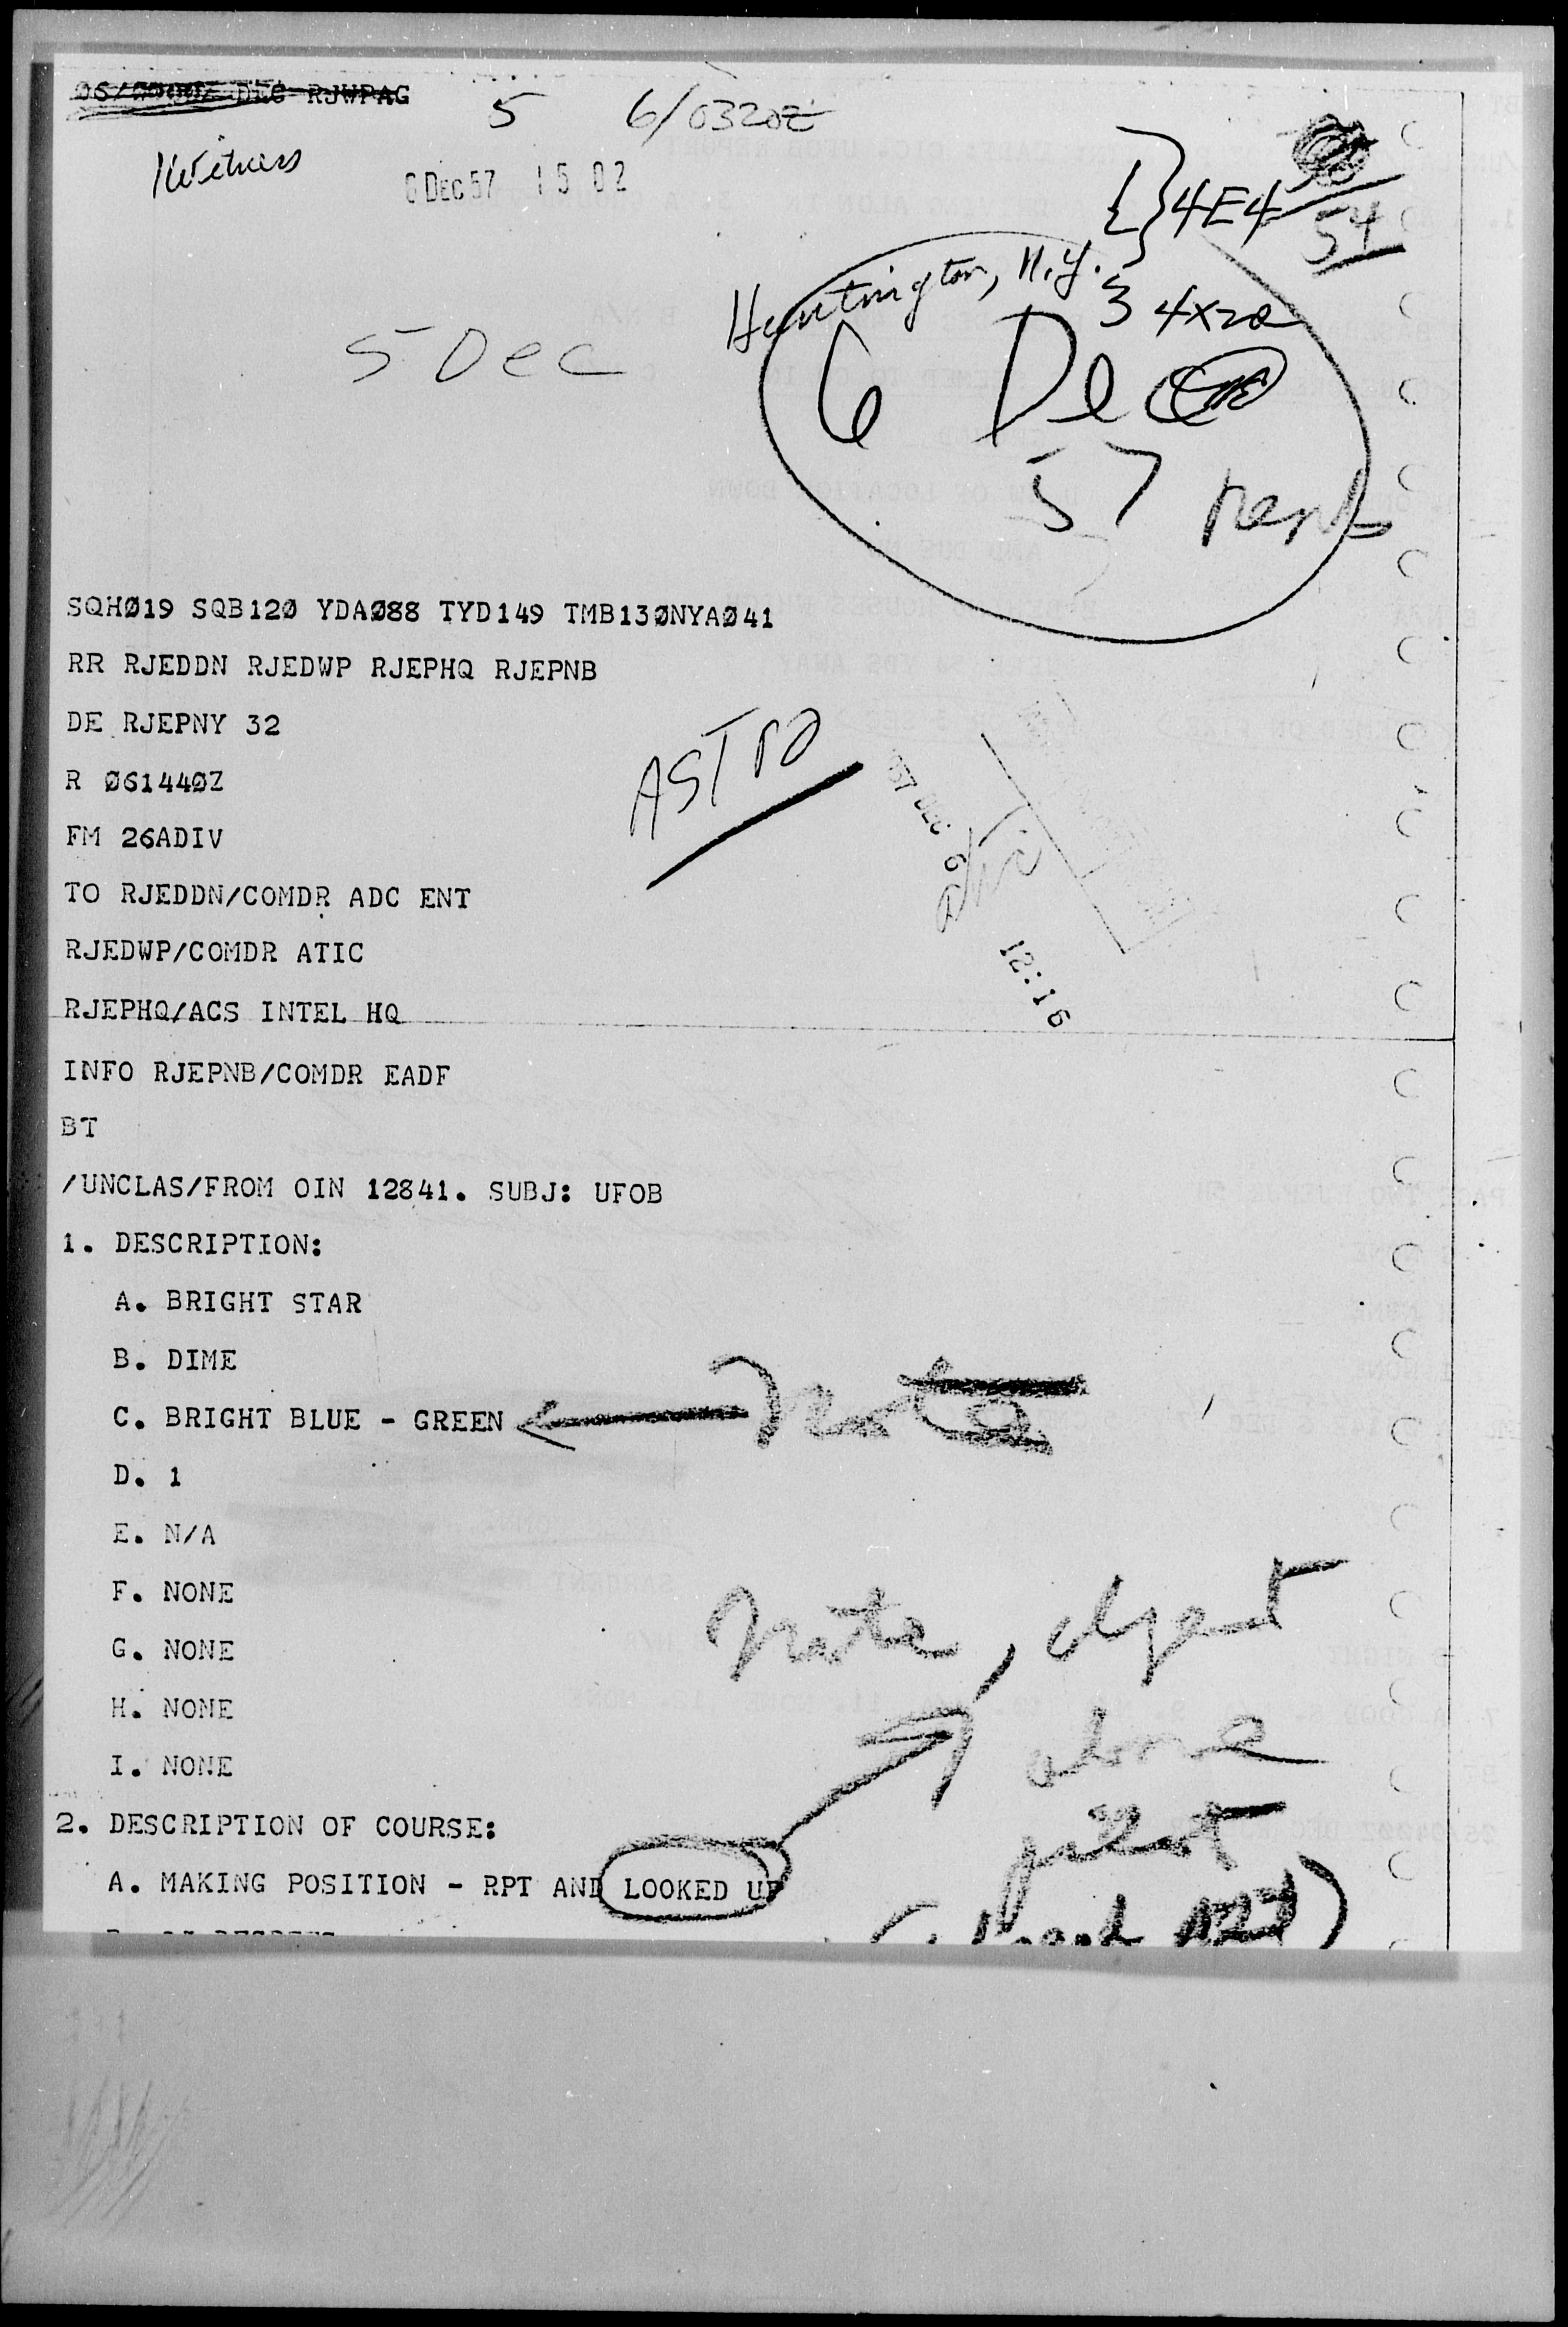 RJWPAG
5 6/0320Z
Witness
6 DEC 57 15 02
4E4
54
Huntington, N.Y.
34X20
5 Dec
6 Dec
57
SQHØ19 SQB12Ø YDAØ88 TYD149 TMB13ØNYAØ41
RR RJEDDN RJEDWP RJEPHQ RJEPNB
DE RJEPNY 32
R Ø6144ØZ
FM 26ADIV
ASTRO
57 DEC 6
12:16
TO RJEDDN/COMDR ADC ENT
RJEDWP/COMDR ATIC
RJEPHQ/ACS INTEL HQ
INFO RJEPNB/COMDR EADF
BT
/UNCLAS/FROM OIN 12841. SUBJ: UFOB
1. DESCRIPTION:
A. BRIGHT STAR
B. DIME
C. BRIGHT BLUE - GREEN
note
D. 1
E. N/A
F. NONE
G. NONE
note, object
above
pilot
H. NONE
I. NONE
2. DESCRIPTION OF COURSE:
A. MAKING POSITION - RPT AND LOOKED UP